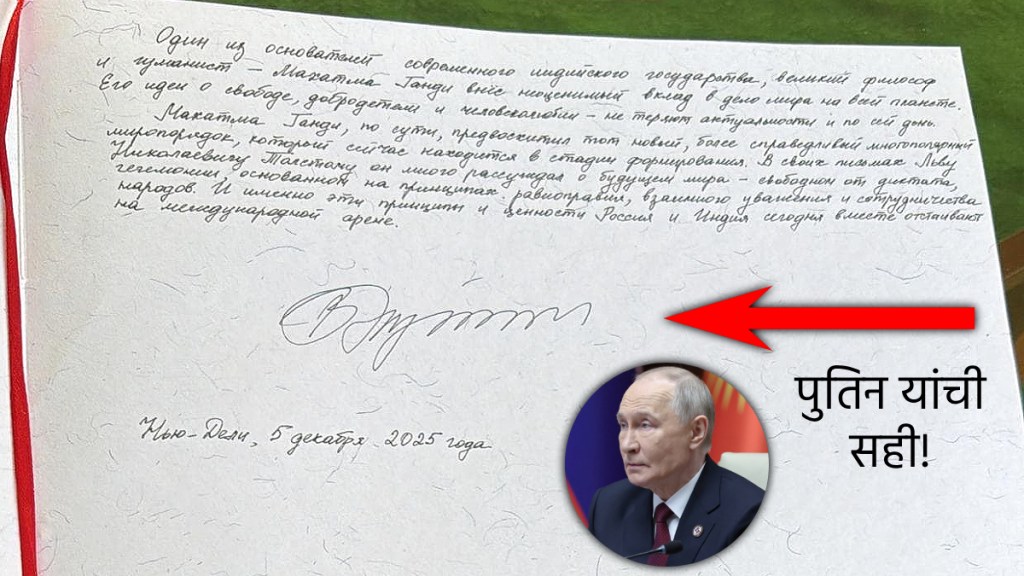 Один из основателей современного индийского государства, великий философ
и гуманист – Махатма Ганди внёс неоценимый вклад в дело мира на всей планете.
Его идеи о свободе, добродетели и человеколюбии – не теряют актуальности и по сей день.
Махатма Ганди, по сути, предвосхитил тот новый, более справедливый многополярный
миропорядок, который сейчас находится в стадии формирования. В своих письмах Льву
Николаевичу Толстому он много рассуждал о будущем мира – свободном от диктата,
гегемонии, основанном на принципах равноправия, взаимного уважения и сотрудничества
народов. И именно эти принципы и ценности Россия и Индия сегодня вместе отстаивают
на международной арене.
Нью-Дели, 5 декабря 2025 года
पुतिन यांची
सही!